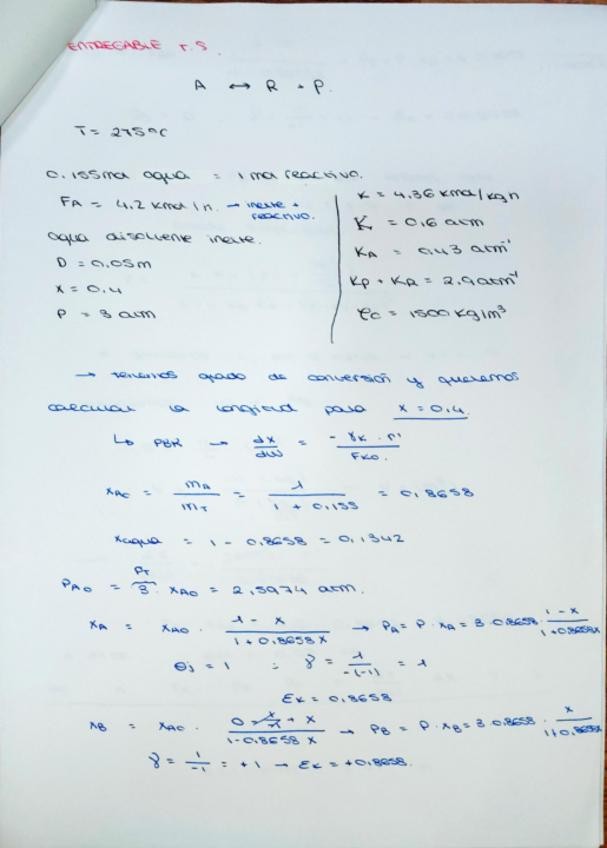 ENTREGABLE T.S.
A ↔ R + P.
T = 275ºC
0.155mol agua = 1 mol reactivo.
FA = 4.2 kmol/h. → inerte + reactivo.
agua disolvente inerte.
D = 0,05m
x = 0,4
P = 3 atm
K = 4,36 kmol/kg h
K = 0,6 atm
KA = 0,43 atm⁻¹
KP + KR = 2,9 atm⁻¹
ρc = 1500 kg/m³
→ tenemos grado de conversión y queremos
calcular la longitud para x = 0,4.
↳ PBR → dx/dW = - γk · r' / Fk0.
xA0 = mA/mT = 1/(1 + 0,155) = 0,8658
xagua = 1 - 0,8658 = 0,1342
PA0 = PT 3 · xA0 = 2,5974 atm.
xA = xA0 · (1 - x)/(1 + 0,8658x) → PA = P · xA = 3 · 0.8658 · (1 - x)/(1 + 0,8658x)
θj = 1 ; γ = 1/-(-1) = 1
Ek = 0,8658
xB = xA0 · (0 + x)/(1 - 0,8658 x) → PB = P · xB = 3 · 0,8658 · x/(1 + 0,8658x)
γ = 1/-1 = +1 → Ek = +0,8658.